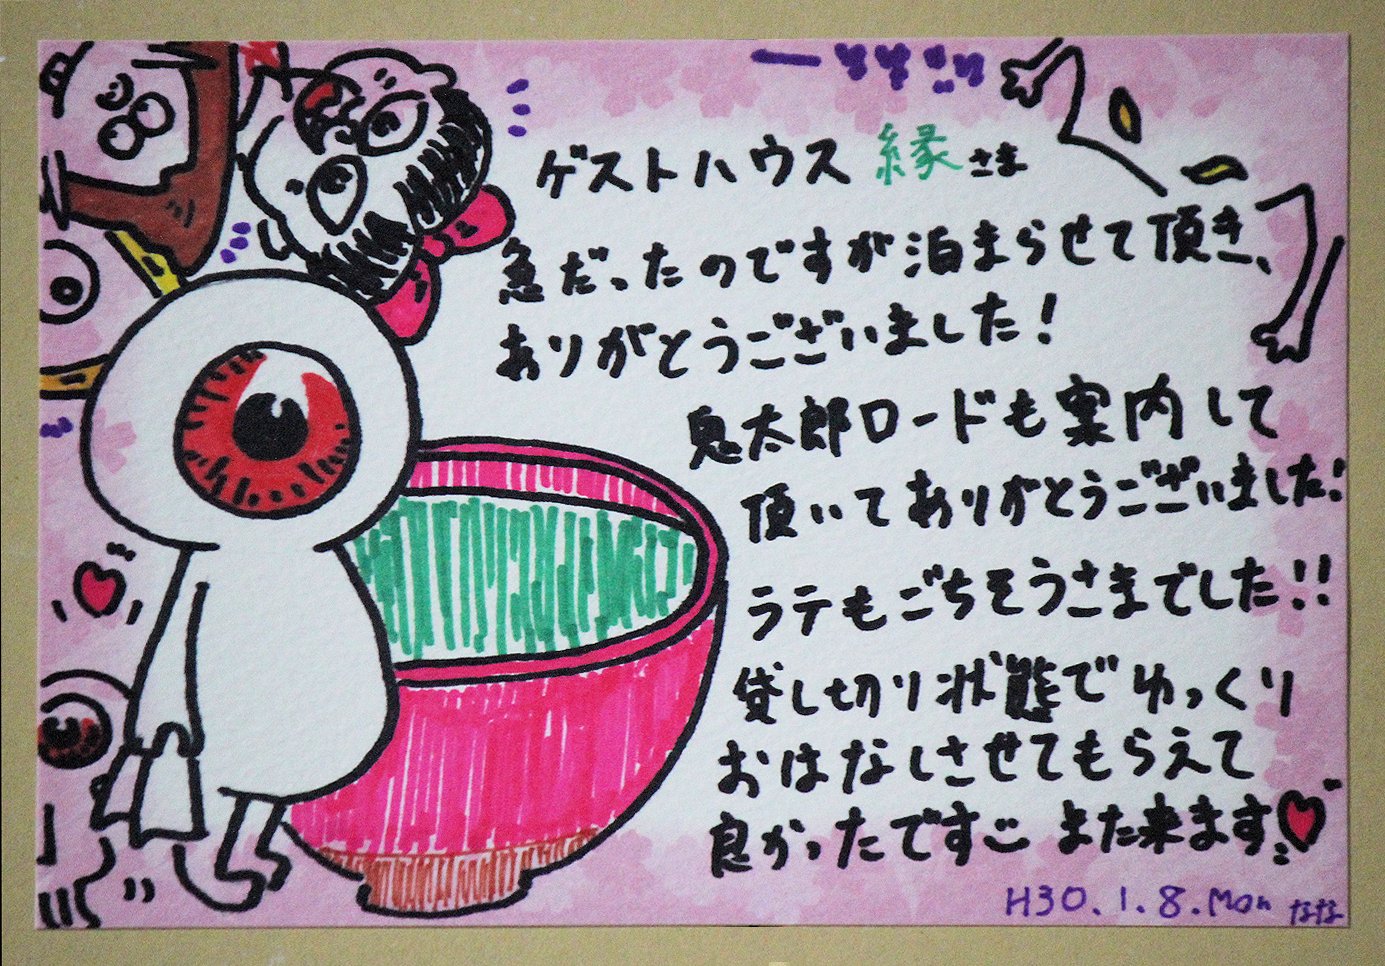 ゲストハウス 縁さま
急だったのですが泊まらせて頂き、
ありがとうございました!
鬼太郎ロードも案内して
頂いてありがとうございました!
ラテもごちそうさまでした!!
貸し切り状態でゆっくり
おはなしさせてもらえて
良かったですこ また来ます
H30.1.8.Mon なな